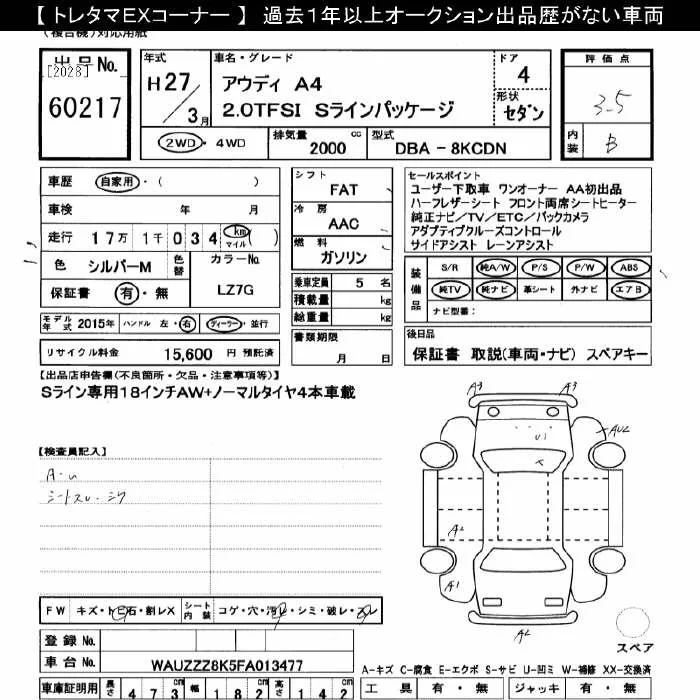 【 トレタマEXコーナー 】 過去1年以上オークション出品歴がない車両
(複合機)対応用紙
出品No.
[2028]
60217
年式
H27/3月
車名・グレード
アウディ A4
2.0TFSI Sラインパッケージ
ドア
4
形状
セダン
評価点
3.5
内装
B
2WD・4WD
排気量
2000 cc
型式
DBA - 8KCDN
車歴 自家用・( )
車検 年 月
走行 17万 1千034 km マイル ( )
色 シルバーM 色替
カラーNo. LZ7G
保証書 有・無
シフト
FAT
冷房
AAC
燃料
ガソリン
乗車定員 5 名
積載量 kg
総重量 kg
セールスポイント
ユーザー下取車 ワンオーナー AA初出品
ハーフレザーシート フロント両席シートヒーター
純正ナビ/TV/ETC/バックカメラ
アダプティブクルーズコントロール
サイドアシスト レーンアシスト
装備品
S/R 純A/W P/S P/W ABS
純TV 純ナビ 革シート 外ナビ エアB
ナビ型番:
モデル年式 2015年 ハンドル 左・右 ディーラー・並行
リサイクル料金 15,600 円 預託済
書類期限
月 日
後日品
保証書 取説(車両・ナビ) スペアキー
【出品店申告欄(不良箇所・欠品・注意事項等)】
Sライン専用18インチAW+ノーマルタイヤ4本車載
【検査員記入】
A・U
シートスレ・シワ
A3 A3
AU2
U1
A2
A1
A2
FW キズ・トビ石・割レX シート内装 コゲ・穴・汚レ・シミ・破レ・スレ
登録 No.
車台 No. WAUZZZ8K5FA013477
スペア
A-キズ C-腐食 E-エクボ S-サビ U-凹ミ W-補修 XX-交換済
車庫証明用 長さ 473cm 幅 182cm 高さ 142cm
工具 有・無 ジャッキ 有・無